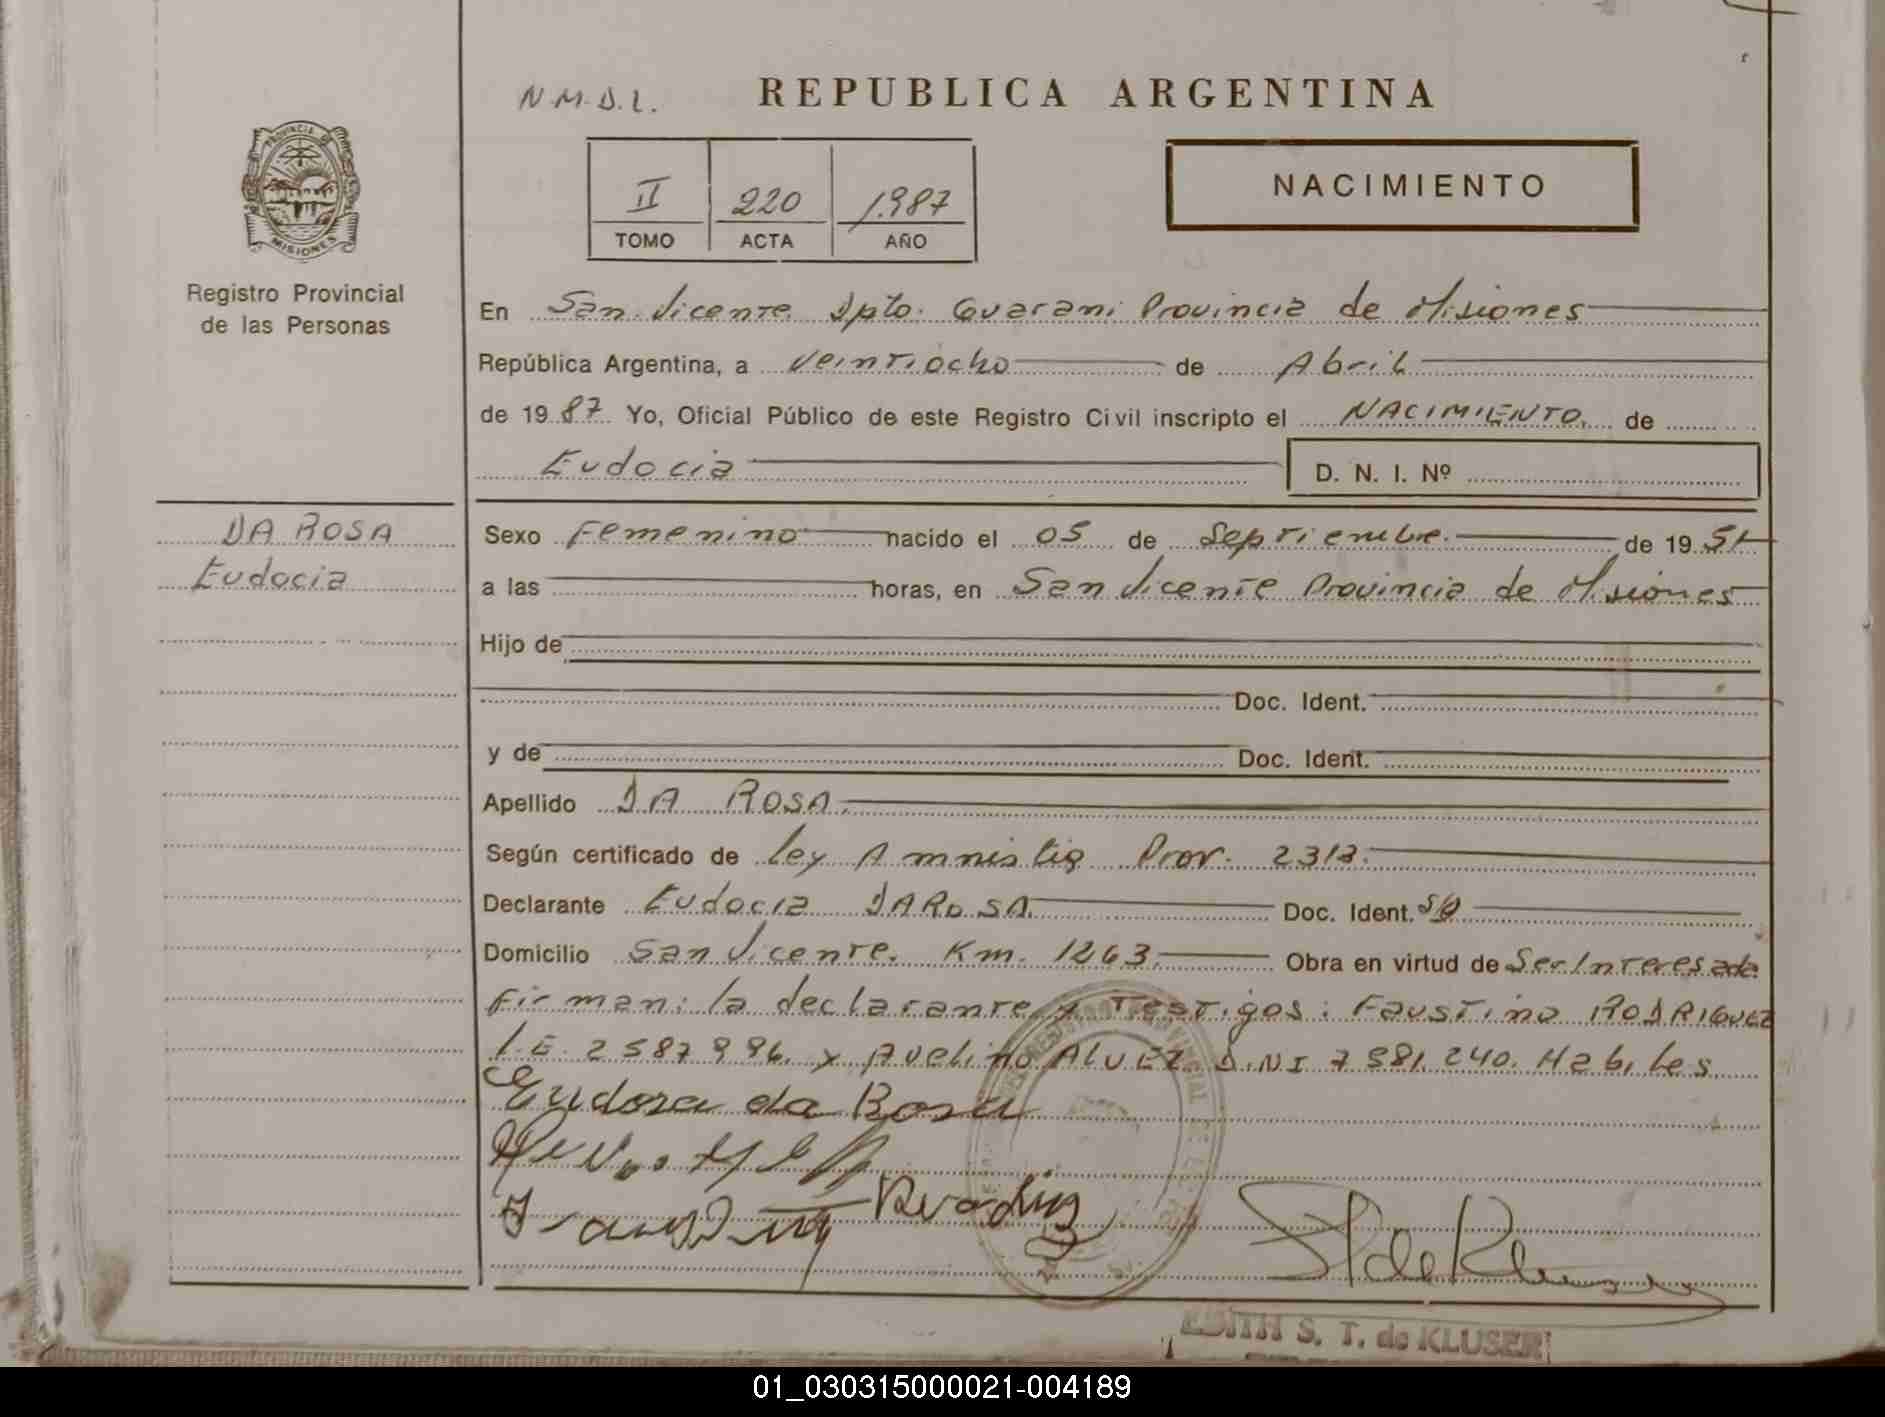 N.M.D.L.
REPUBLICA ARGENTINA
PROVINCIA DE
MISIONES
II 220 1.987
TOMO ACTA AÑO
NACIMIENTO
Registro Provincial
de las Personas
En San Vicente Dpto. Guarani Provincia de Misiones
República Argentina, a veintiocho de Abril
de 1987 Yo, Oficial Público de este Registro Civil inscripto el NACIMIENTO. de
Eudocia D. N. I. Nº
DA ROSA
Eudocia
Sexo Femenino nacido el 05 de Septiembre. de 1951
a las horas, en San Vicente Provincia de Misiones
Hijo de
Doc. Ident.
y de Doc. Ident.
Apellido DA ROSA.
Según certificado de Ley Amnistia Prov. 2313.
Declarante Eudocia DA ROSA. Doc. Ident.
Domicilio San Vicente. Km. 1263. Obra en virtud de Ser Interesada
Firman: la declarante y Testigos: Faustino RODRIGUEZ
L.E. 2587996. y Avelino ALVEZ D.NI 7581.240. Habiles
Eudosa da Rosa
EDITH S. T. de KLUSER
01_030315000021-004189